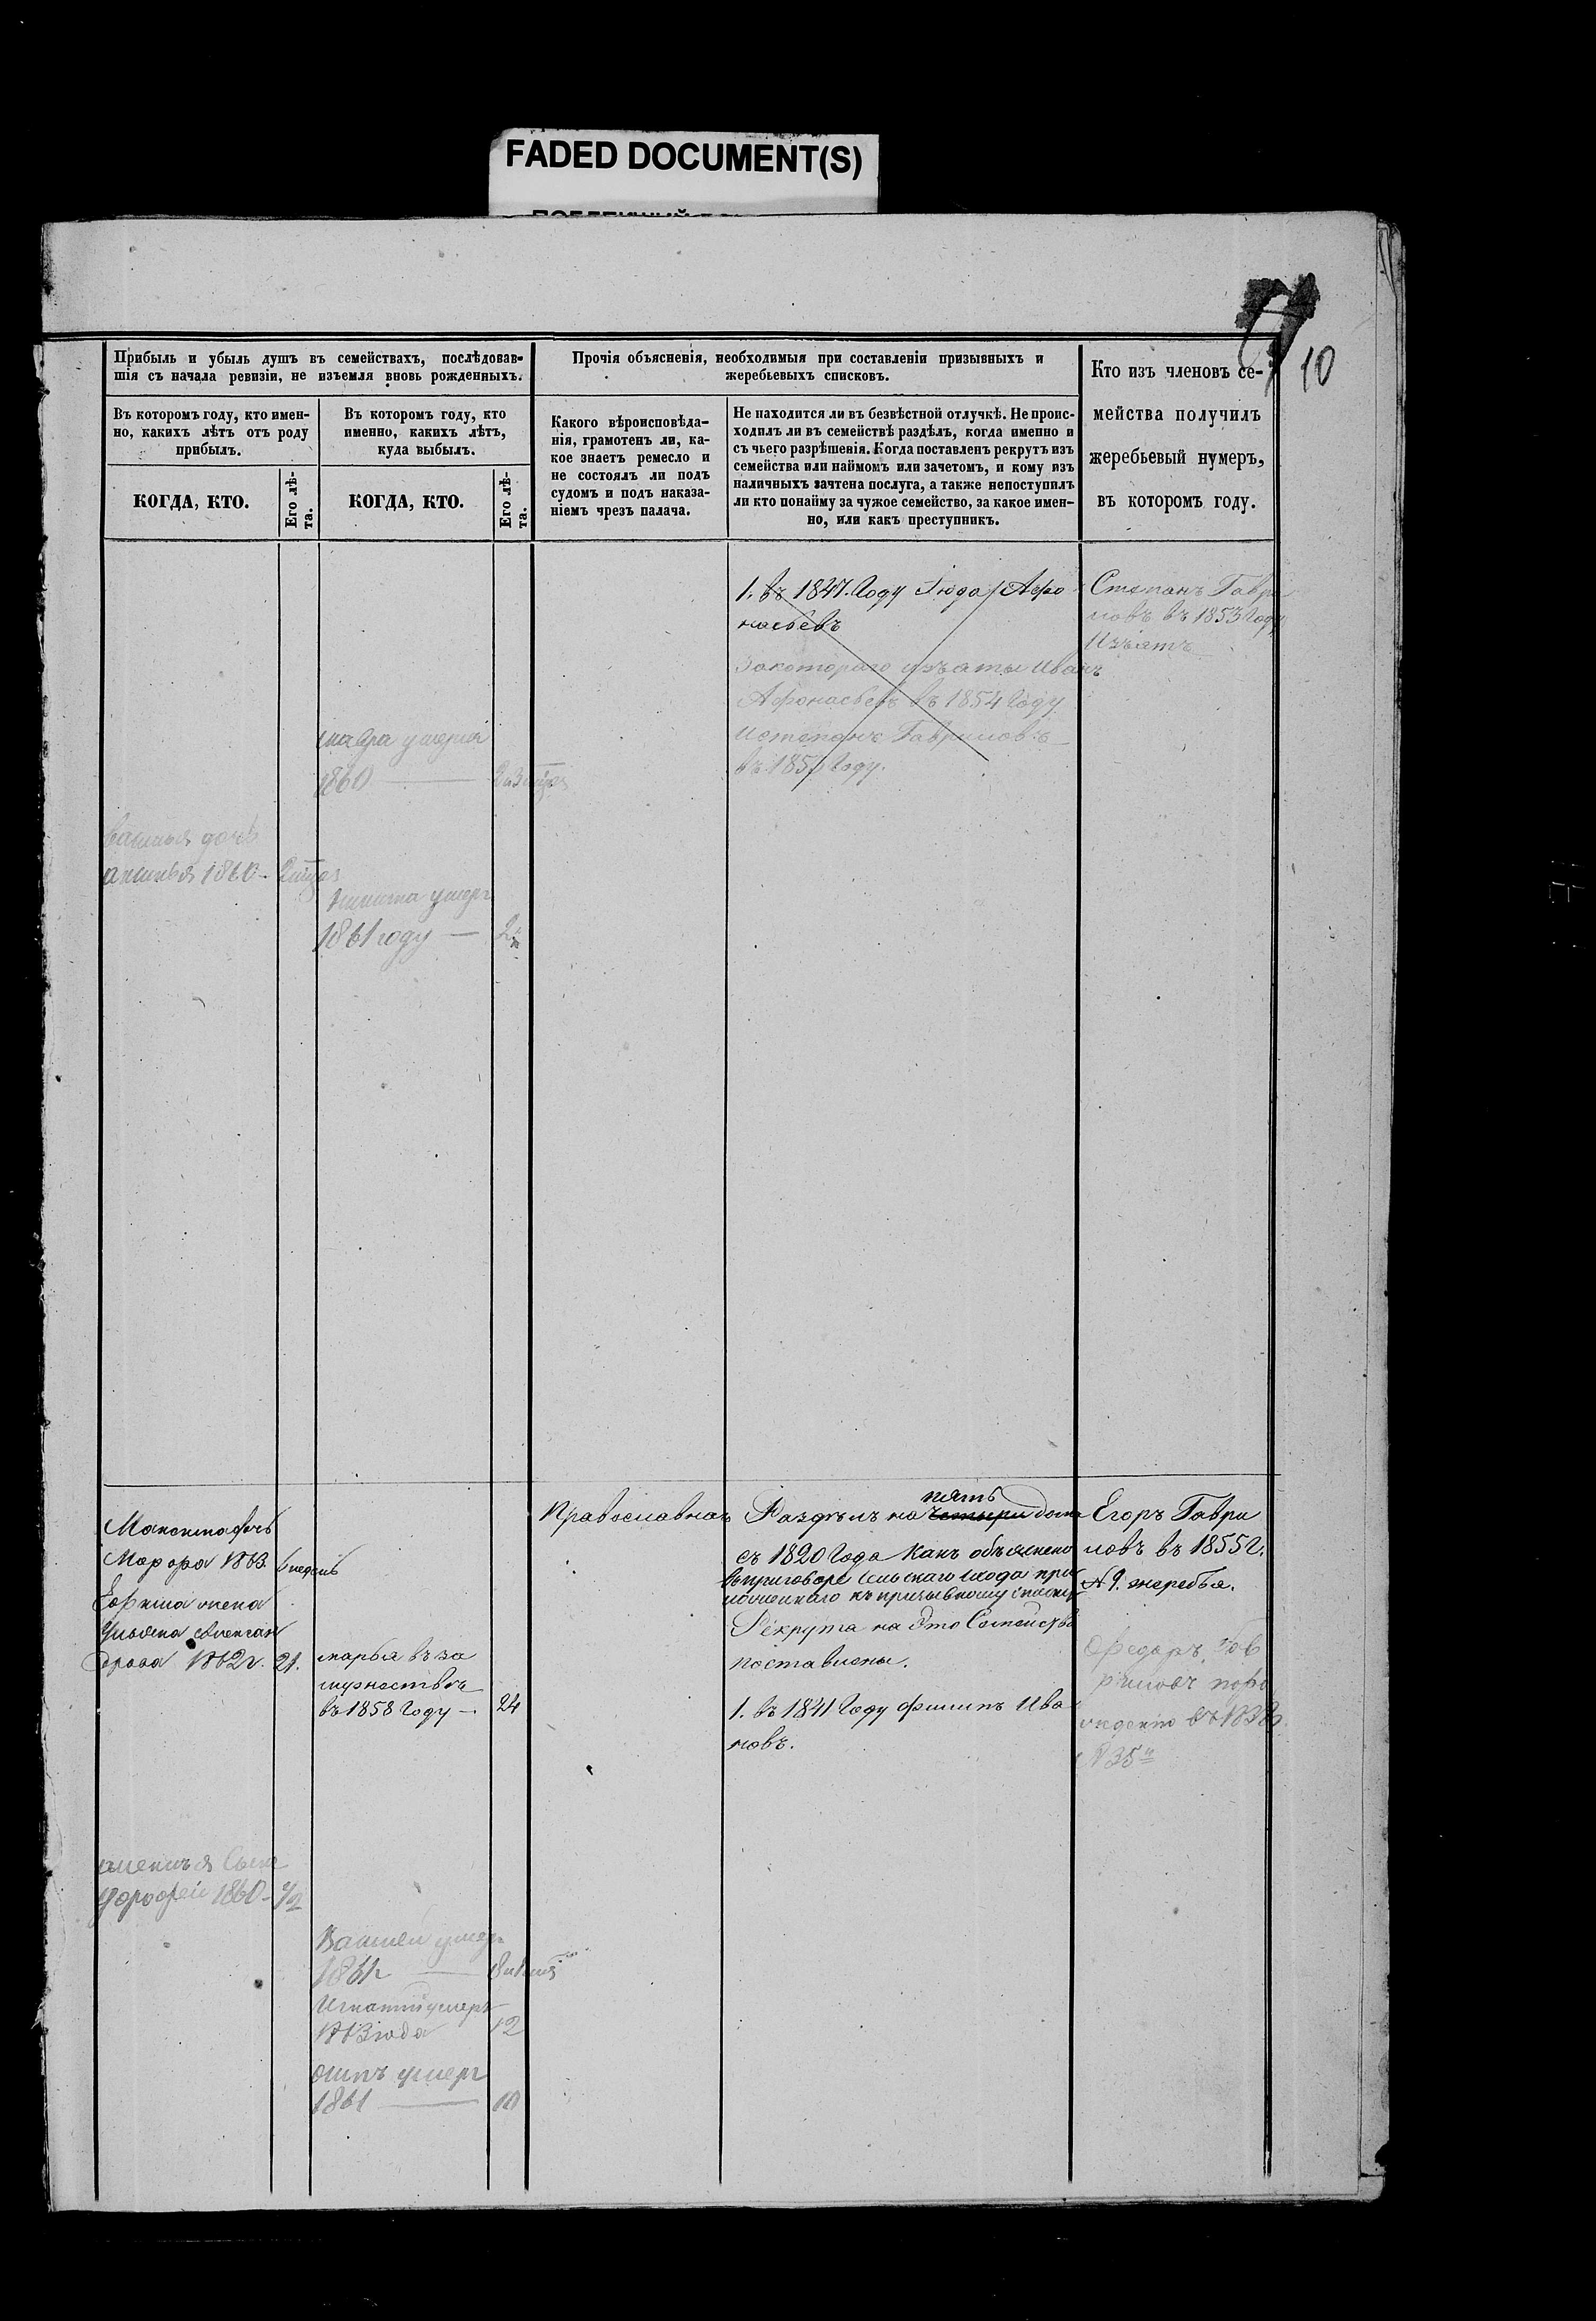 FADED DOCUMENT(S)
10
Прибыль и убыль душъ въ семействахъ, послѣдовав-
шія съ начала ревизіи, не изъемля вновь рожденныхъ.
Прочія объясненія, необходимыя при составленіи призывныхъ и
жеребьевыхъ списковъ.
Кто изъ членовъ се-
мейства получилъ
жеребьевый нумеръ,
въ которомъ году.
Въ которомъ году, кто имен-
но, какихъ лѣтъ отъ роду
прибылъ.
Въ которомъ году, кто
именно, какихъ лѣтъ,
куда выбылъ.
Какого вѣроисповѣда-
нія, грамотенъ ли, ка-
кое знаетъ ремесло и
не состоялъ ли подъ
судомъ и подъ наказа-
ніемъ чрезъ палача.
Не находится ли въ безвѣстной отлучкѣ. Не проис-
ходилъ ли въ семействѣ раздѣлъ, когда именно и
съ чьего разрѣшенія. Когда поставленъ рекрутъ изъ
семейства или наймомъ или зачетомъ, и кому изъ
наличныхъ зачтена послуга, а также непоступилъ
ли кто понайму за чужое семейство, за какое имен-
но, или какъ преступникъ.
КОГДА, КТО.
Его лѣ-
та.
КОГДА, КТО.
Его лѣ-
та.
1. въ 1847. Году Июда Афо
насьевъ
Закотораго изъяты Иванъ
Афонасьевъ въ 1854 Году
Истепанъ Гавриловъ
въ 185 Году.
Степанъ Гаври
ловъ въ 1853 Году
Изъятъ
умерла
1860
дочь
1860
Никита умеръ
1861 году — 2
Православнаго
Раздѣлъ на пять четыри дома
съ 1820 Года Какъ объяснено
въприговоре Сельскаго схода при
ложеннаго къ призывному списку
Рекрута на Это Семейство
поставлены.
1. въ 1841 Году Филипъ Ива
новъ.
Егоръ Гаври
ловъ въ 1855 г.
№ 9. жеребья.
Федоръ Гав
риловъ
№ 35
Максима дочь
недель
Ефима жена
Ульяна Александ
рова 1862 г. 21.
марья въ за
мужество
въ 1858 Году — 24
Сынъ
дорофей 1860 1/2
умеръ
1861 г
Игнатий умеръ
1863 года 12
осипъ умеръ
1861 — 10